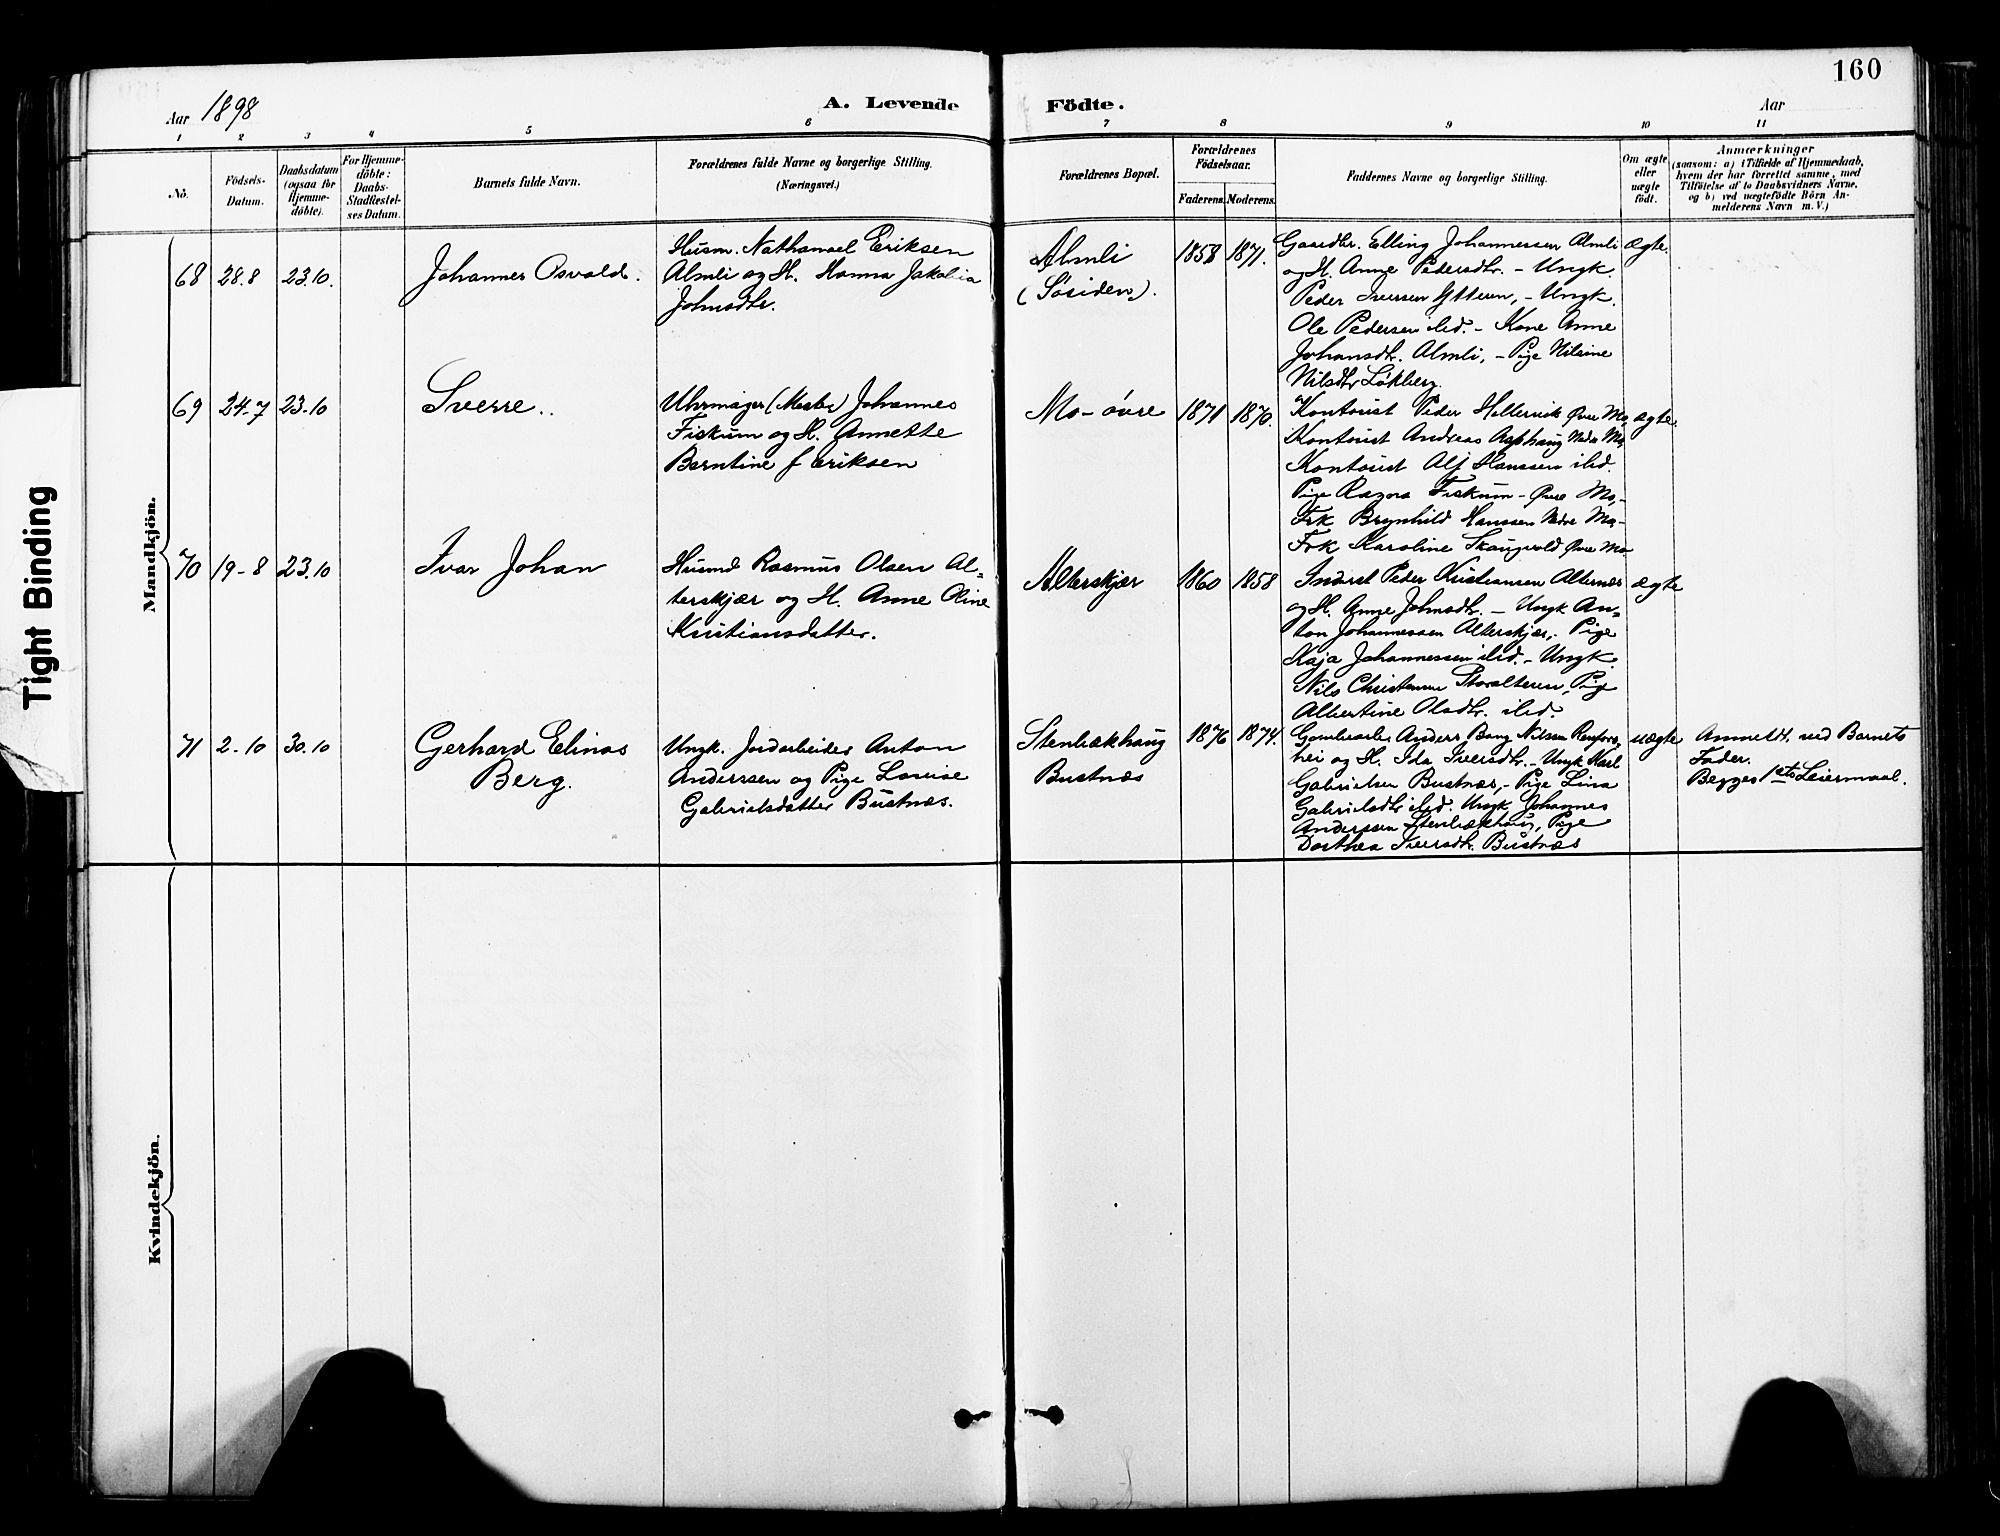 160
Aar 1898
A. Levende Födte.
Aar
1 2 3 4 5 6 7 8 9 10 11
No.
Födsels-
Datum.
Daabsdatum
(ogsaa for
Hjemme-
döbte).
For Hjemme-
döbte:
Daabs-
Stadfæstel-
ses Datum.
Barnets fulde Navn.
Forældrenes fulde Navne og borgerlige Stilling.
(Næringsvei.)
Forældrenes Bopæl.
Forældrenes
Födselsaar.
Faderens. Moderens.
Faddernes Navne og borgerlige Stilling.
Om ægte
eller
uægte
födt.
Anmærkninger
(saasom: a) i Tilfælde af Hjemmedaab,
hvem der har forrettet samme, med
Tilföielse af to Daabsvidners Navne,
og b) ved uægtefödte Börn An-
melderens Navn m. V.)
Mandkjön.
68 28.8 23.10. Johannes Osvald.
Husm. Nathanael Eriksen
Almli og H. Hanna Jakobia
Johnsdtr.
Almli
(Søsiden).
1858 1871.
Gaardbr. Elling Johannessen Almli
og H. Anne Pedersdtr. - Ungk.
Peder Iversen Ytteren, - Ungk.
Ole Pedersen ibid. - Kone Anne
Johansdtr. Almli, - Pige Nilsine
Nilsdtr Løkberg.
ægte.
69 24-7 23.10 Sverre..
Uhrmager (Mester) Johannes
Fiskum og H. Annette
Berntine f Eriksen
Mo- övre
1871 1870.
Kontorist Peder Hellervik Øvre Mo,
Kontorist Andreas Asphaug Nedre Mo,
Kontorist Alf Hanssen ibid.
Pige Ragna Fiskum - Øvre Mo,-
Frk Brynhild Hanssen Nedre Mo-
Frk Karoline Skaugvold Øvre Mo
ægte.
70 19-8 23.10 Ivar Johan
Husmd Rasmus Olsen Al-
terskjær og H. Anne Oline
Kristiansdatter.
Alterskjær
1860 1858
Inderst Peder Kristiansen Alternæs
og H. Anne Johnsdtr. - Ungk An-
ton Johannessen Alterskjær,- Pige
Kaja Johannessen ibid. - Ungk.
Nils Storalteren, Pige
Albertine Olsdtr. ibid.
ægte
71 2-10 30.10 Gerhard Elinas
Berg.
Ungk. Jordarbeider Anton
Anderssen og Pige Lovise
Gabrielsdatter Bustnæs.
Stenbækhaug
Bustnæs
1876 1874.
Anders Bang Nilsen
hei og H. Ida Iversdtr. - Ungk Karl
Gabrielsen Bustnæs,- Pige Lina
Gabrielsdtr ibid. Ungk Johannes
Anderssen Stenbækhaug, Pige
Dorthea Iversdtr. Bustnæs
uægte
Anmeldt ved Barnets
Fader.
Begges 1ste Leiermaal.
Kvindekjön.
Tight Binding